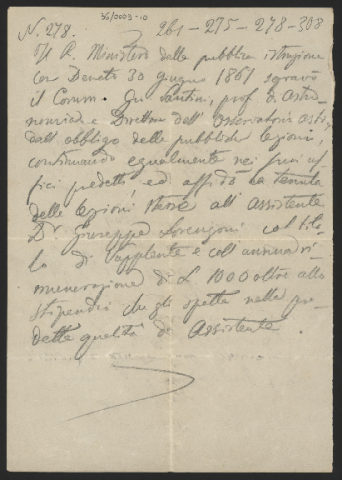 N. 278.
261-275-278-308
Il R. Ministero della pubblica istruzione
con Decreto 30 giugno 1867 sgravò
il Comm. Gio Santini, prof. di astro
nomia e Direttore dell' Osservatorio astr.
dall' obbligo delle pubbliche lezioni,
continuando egualmente nei suoi uf
fici predetti, ed affidò la tenuta
delle lezioni stesse all' assistente
Dr Giuseppe Lorenzoni col tito
lo di supplente e coll' annua ri
munerazione di L. 1000 oltre allo
stipendio che gli spetta nella pre
detta qualità di Assistente.